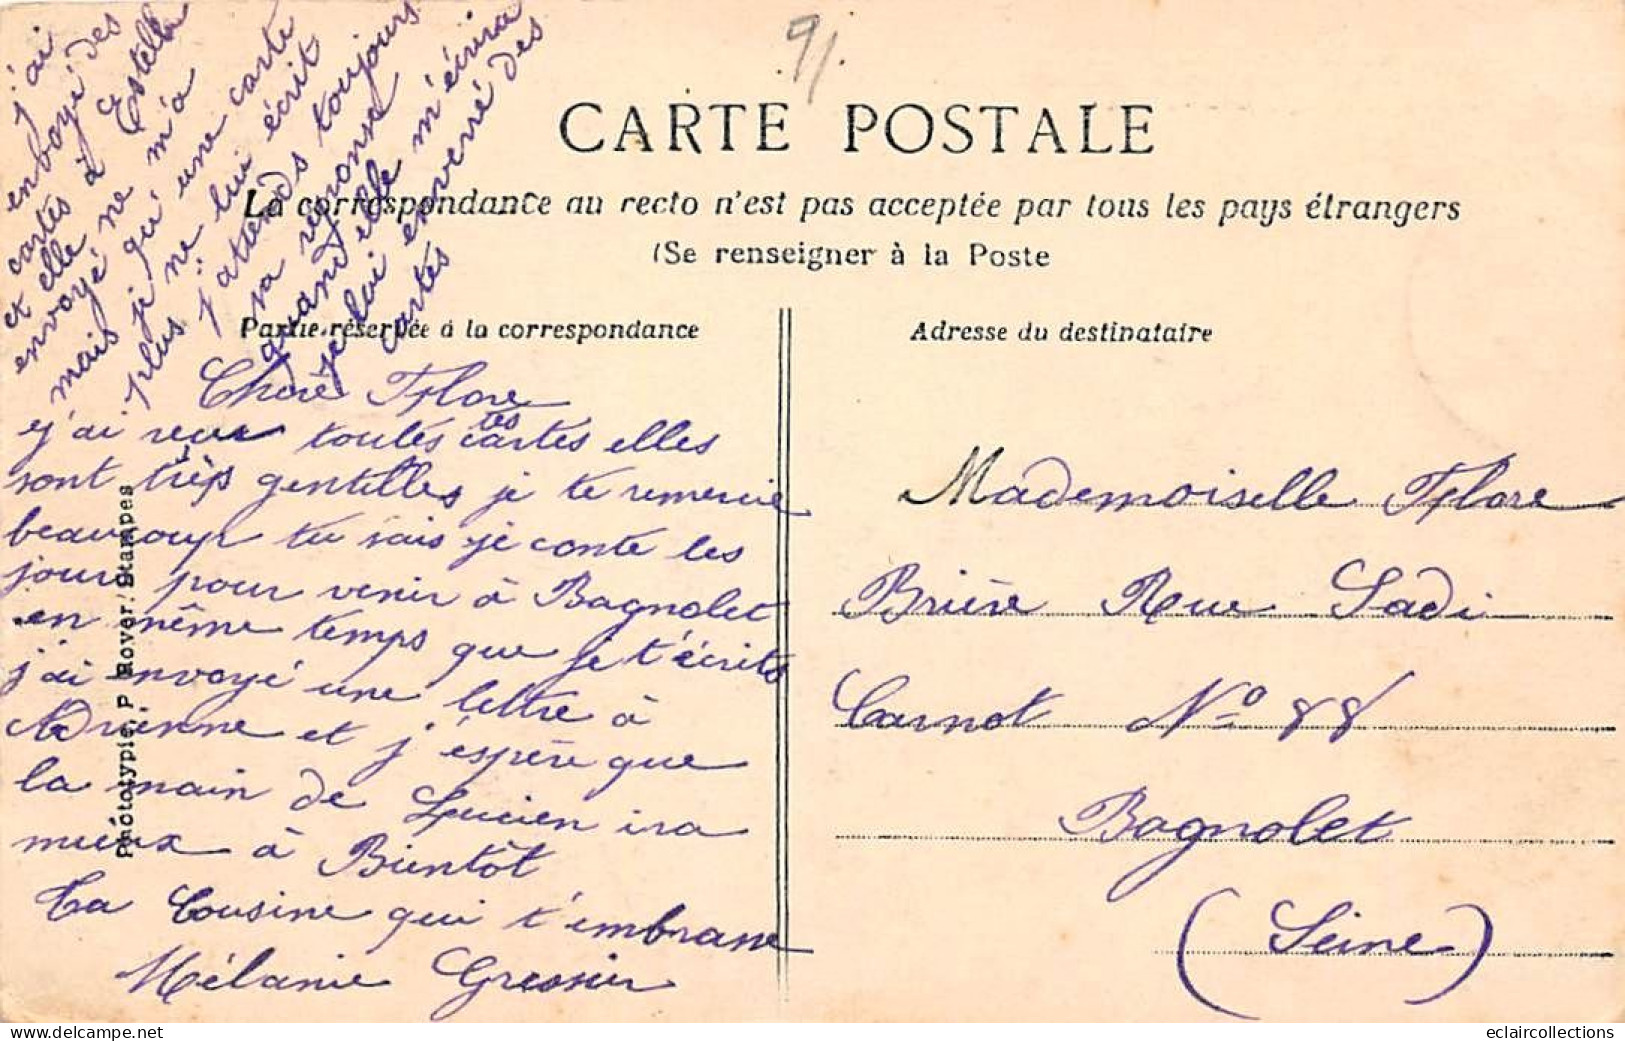 91.
CARTE POSTALE
La correspondance au recto n'est pas acceptée par tous les pays étrangers
(Se renseigner à la Poste
Partie réservée à la correspondance
Adresse du destinataire
j'ai
envoyé des
cartes à Estelle
et elle ne m'a
envoyé qu'une carte
mais je ne lui écrit
plus j'attends toujours
sa reponse
quand elle m'écrira
je lui enverré des
cartes
Chère Flore
j'ai reçu toutes tes cartes elles
sont très gentilles je te remercie
beaucoup tu sais je conte les
jours pour venir à Bagnolet
en même temps que je t'écrits
j'ai envoyé une lettre à
Adrienne et j'espère que
la main de Lucien ira
mieux à Bientôt
Ta Cousine qui t'embrasse
Mélanie Gressier
Phototypie P Royer, Etampes
Mademoiselle Flore
Brière Rue Sadi
Carnot N° 88
Bagnolet
(Seine)
eclaircollections